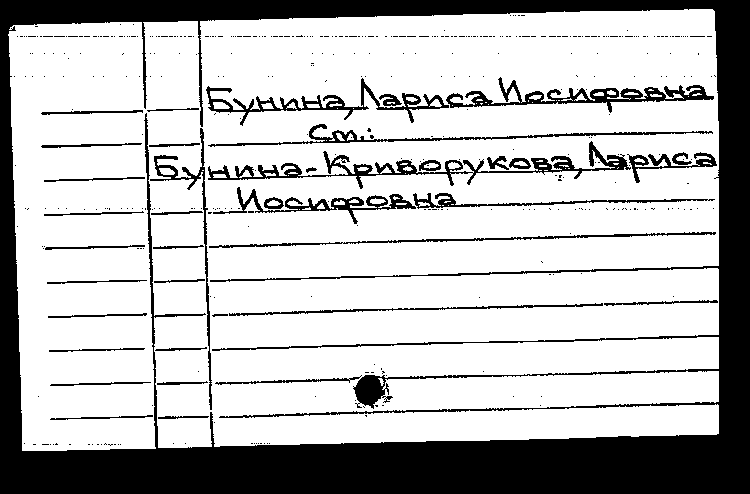 Бунина, Лариса Иосифовна
См.:
Бунина-Криворукова, Лариса
Иосифовна